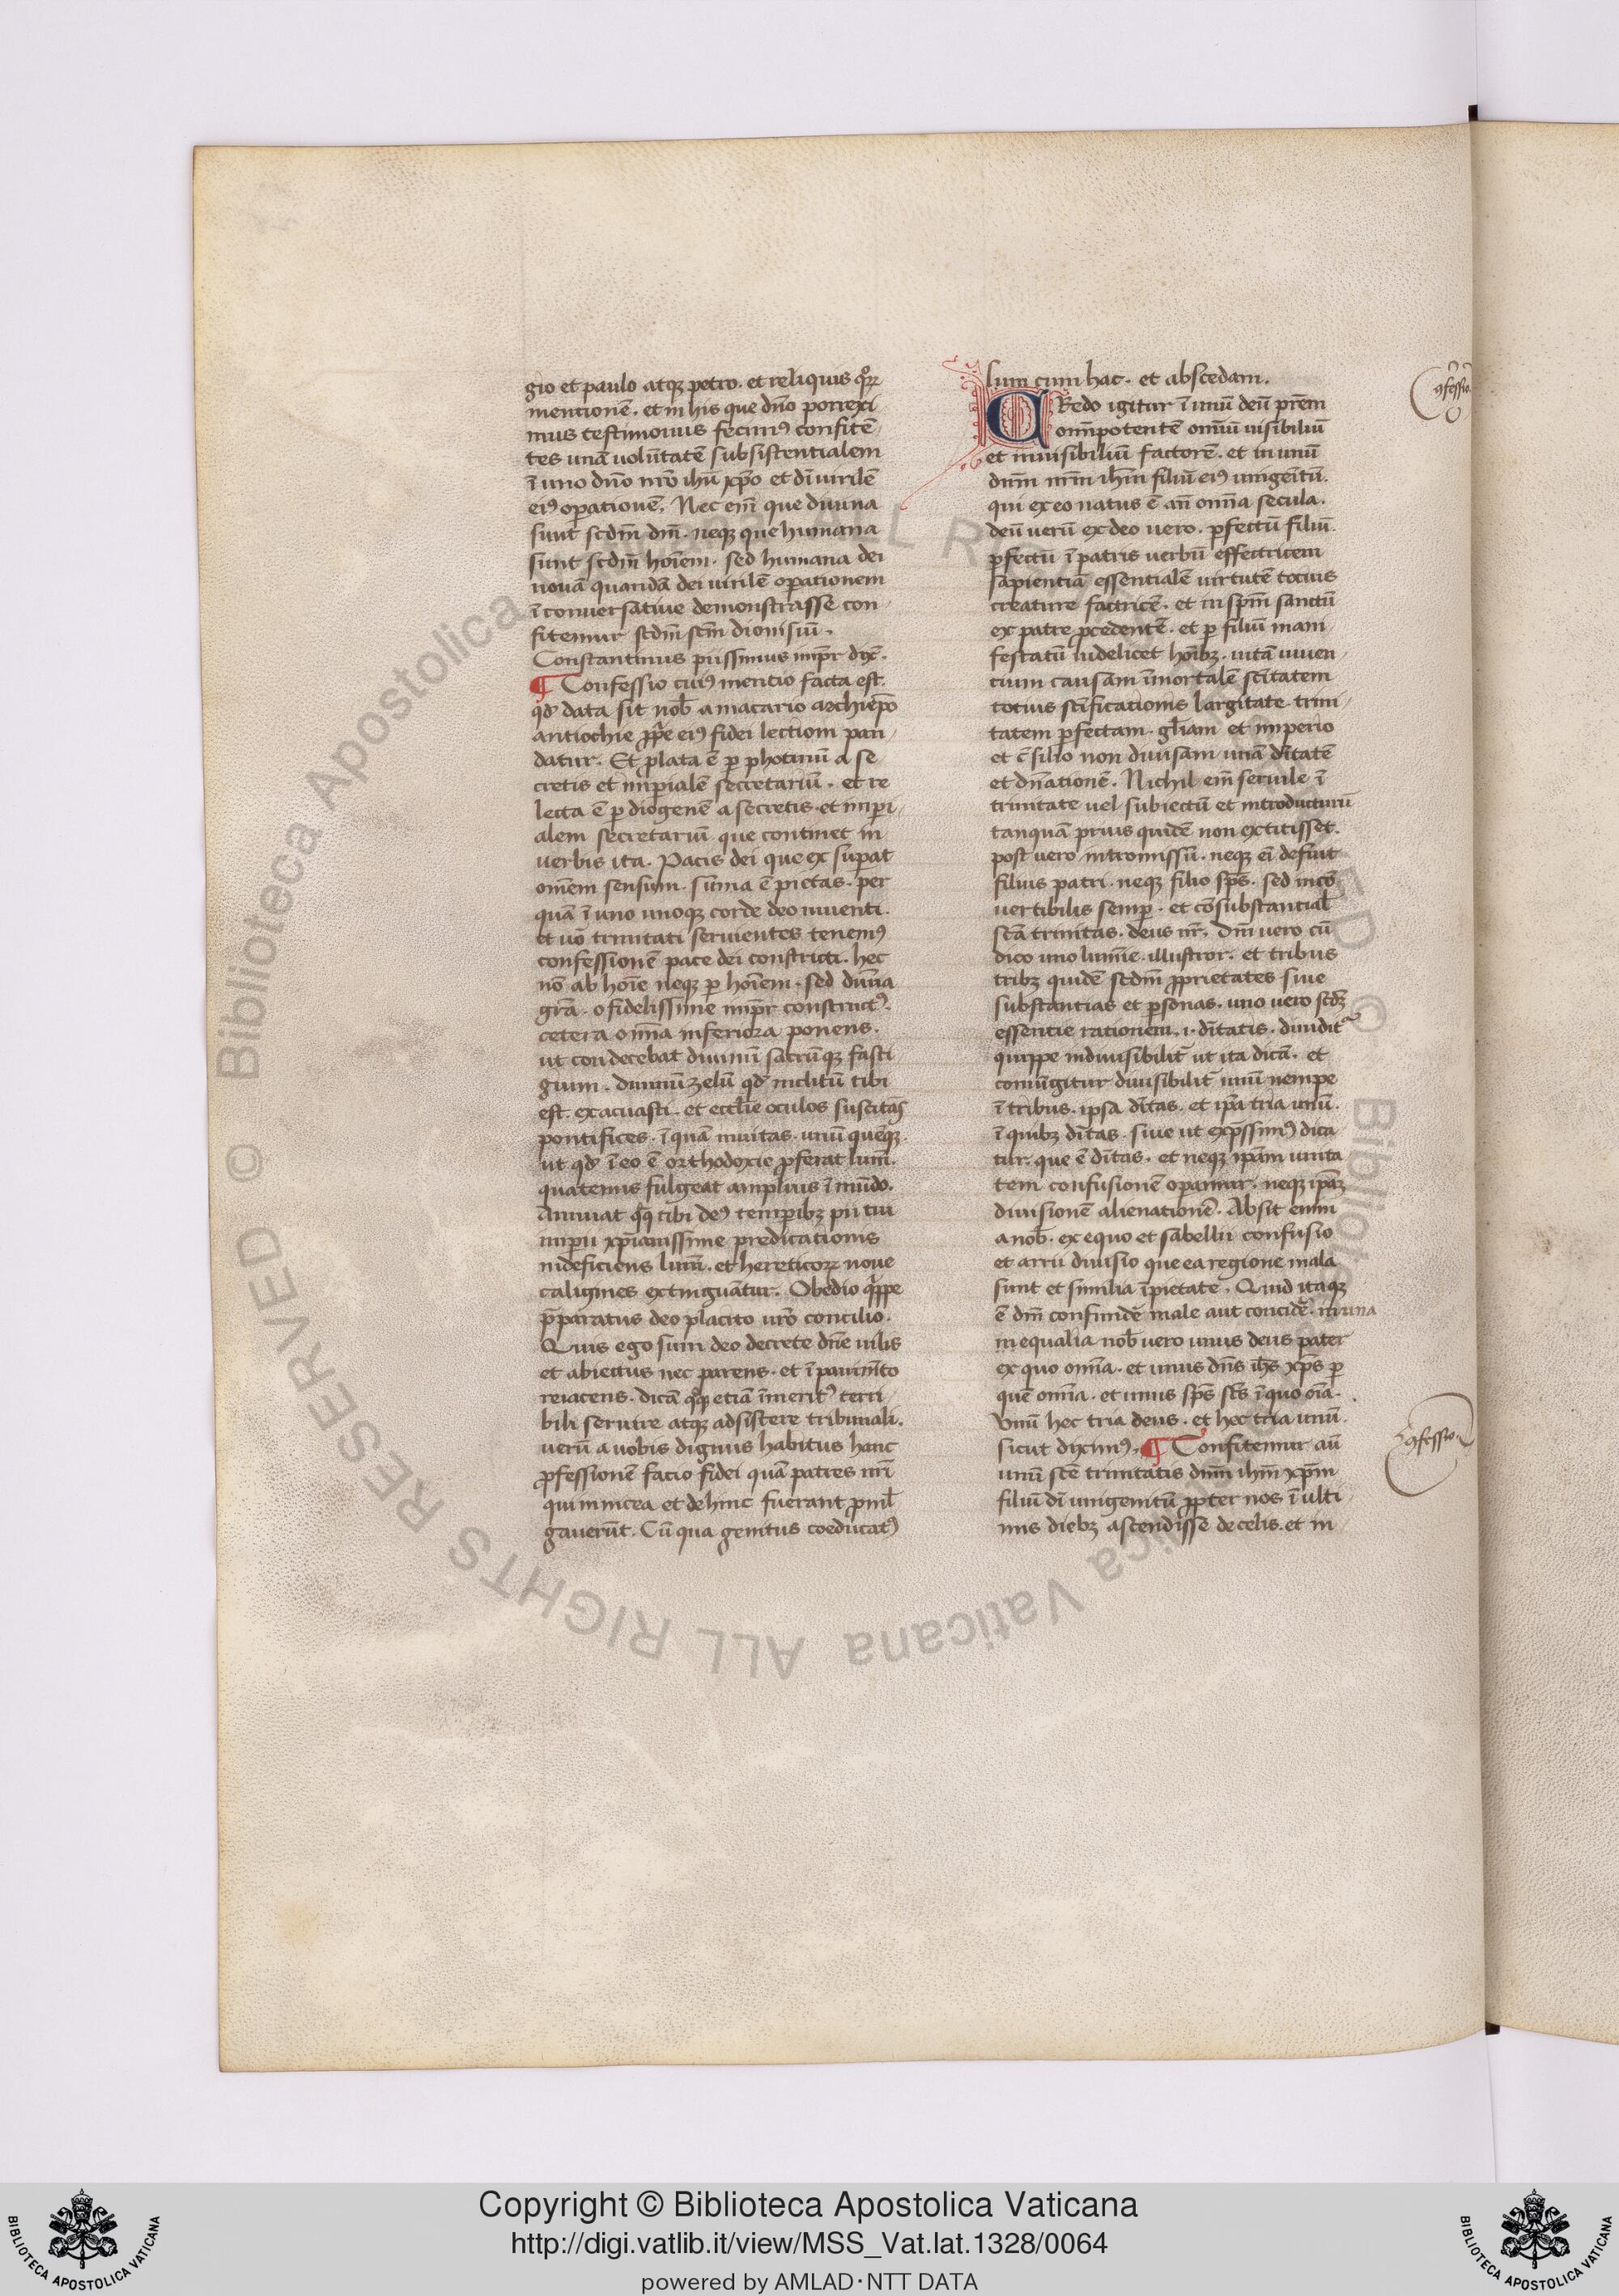 gio et paulo atqꝫ petro. et reliquis qͦꝝ
mentionē. et in his que dn̄o porrexi
mus testimoniis fecimꝰ confitē
tes unā uolūtatē subsistentialem
ī uno dn̄o nr̄o ihū xp̄o et dī uirilē
eiꝰ oꝑationē. Nec em̄ que diuina
sunt scdm̄ dm̄. neqꝫ que humana
sunt scdm̄ hoīem. sed humana dei
nouā quandā dei uirilē operationem
ī conuersatiue demonstrasse con
fitemur scdm̄ scm̄ dionisiū.
Constantinus piissimus impr̄ dyc̄.
¶ Confessio cuiꝰ mentio facta est.
qd̓ data sit nob̄ a macario archiep̄o
antiochie ꝓpe eiꝰ fidei lectiom pan
datur. Et ꝓlata ē ꝑ photinū a se
cretis et imꝑialē secretariū. et re
lecta ē ꝑ diogenē a secretis. et imperi
alem secretariū que continet in
uerbis ita. Pacis dei que ex suꝑat
omēm sensum. sūma ē pietas. per
quā ī uno unoqꝫ corde deo iuuenti.
et uō trinitati seruientes tenemꝰ
confessionē pace dei constricti. hec
nō ab hoīe neqꝫ ꝑ hoīem. sed diuīa
gr̄a. o fidelissime impr̄ constructꝰ.
cetera om̄ia inferiora ponens.
ut con decebat diuinū sacrūqꝫ fasti
gium. diuinū zelū qd̓ inclitū tibi
est. exacuasti. et eccl̄ie oculos suscitas
pontifices. ī quā inuitas. unū quēqꝫ.
ut qd̓ ī eo ē orthodoxie ꝓferat lum̄.
quatenus fulgeat amplius ī mūdo.
Annuat qq̄ tibi deꝰ temporibꝫ pii tui
imꝑii xp̄ianissime predicationis
indeficiens lum̄. et hereticoꝝ noue
caligines extinguātur. Obedio qͥppe
p̄paratus deo placito ur̄o concilio.
Quis ego sum deo decrete dn̄e uilis
et abiectus nec parens. et ī pauimt̄o
reiacens. dicā qͦqꝫ etiā īmeritꝰ terri
bili seruire atqꝫ adsistere tribunali.
uerū a uobis dignus habitus hanc
ꝓfessionē facio fidei quā patres nr̄i
qui in nicea et dehinc fuerant ꝓmul̄
gauerūt. Cū qua genitus coeducatꝰ
lum cum hac. et abscedam.
CRedo igitur ī unū deū pr̄em
om̄ipotentē omīū uisibiliū
et inuisibiliū factorē. et in unū
dnm̄ nrm̄ ihm̄ filiū eiꝰ unigeītū.
qui ex eo natus ē an̄ om̄ia secula.
deū uerū ex deo uero. ꝑfectū filiū.
ꝑfectū ī patris uerbū effectricem
sapientiā essentialē uirtutē totius
creature factricē. et in spm̄ sanctū
ex patre ꝓcedentē. et ꝑ filiū mani
festatū uidelicet hoībꝫ. uitā uiuen
cium causam īmortalē scītatem
totius scīficationis largitate. trini
tatem ꝑfectam. gl̄iam et imperio
et c̄silio non diuisam. unā dītatē
et dn̄ationē. Nichil em̄ seruile ī
trinitate uel subiectū et introductuꝝ
tanquā prius quidē non extitisset.
post uero intromissū. neqꝫ eī defuit
filius patri. neqꝫ filio sp̄s. sed incō
uertibilis semꝑ. et cōsubstantial̄
scā trinitas. deus nr̄. Dm̄ uero cū
dico uno lumīe. illustror. et tribus
tribꝫ quidē scdm̄ ꝓprietates siue
substantias et ꝑsonas. uno uero scdꝫ
essentie rationem. i. dītatis. diuidit᷑
quippe indiuisibilit̄ ut ita dicā. et
coniūgitur diuisibilit̄ unū nempe
ī tribus. ipsa dītas. et ip̄a tria unū.
ī quibꝫ dītas. siue ut exp̄ssimꝰ dica
tur. que ē dītas. et neqꝫ ip̄am unita
tem confusionē oꝑamur. neqꝫ ip̄aꝫ
diuisionē alienationē. Absit enim
a nob̄. ex equo et sabellii confusio
et arrii diuisio que ea regione mala
sunt et similia īpietate. Quid itaqꝫ
ē dm̄ confundē male aut concidē. ruina
inequalia nob̄ uero unus deus pater
ex quo om̄ia. et unus dn̄s ih̄s xp̄s ꝑ
quē om̄ia. et unus sp̄s sc̄s ī quo oīa.
Unū hec tria deus. et hec tria unū.
sicut dyximꝰ. ¶ Confitemur aū
unū scē trinitatis dnm̄ ihm̄ xp̄m
filiū dī unigenitū ꝓpter nos ī ulti
mis diebꝫ ascendisse de celis. et in
ꝯfessio
ꝯfessio
Copyright © Biblioteca Apostolica Vaticana
http://digi.vatlib.it/view/MSS_Vat.lat.1328/0064
powered by AMLAD·NTT DATA
BIBLIOTECA APOSTOLICA VATICANA
BIBLIOTECA APOSTOLICA VATICANA